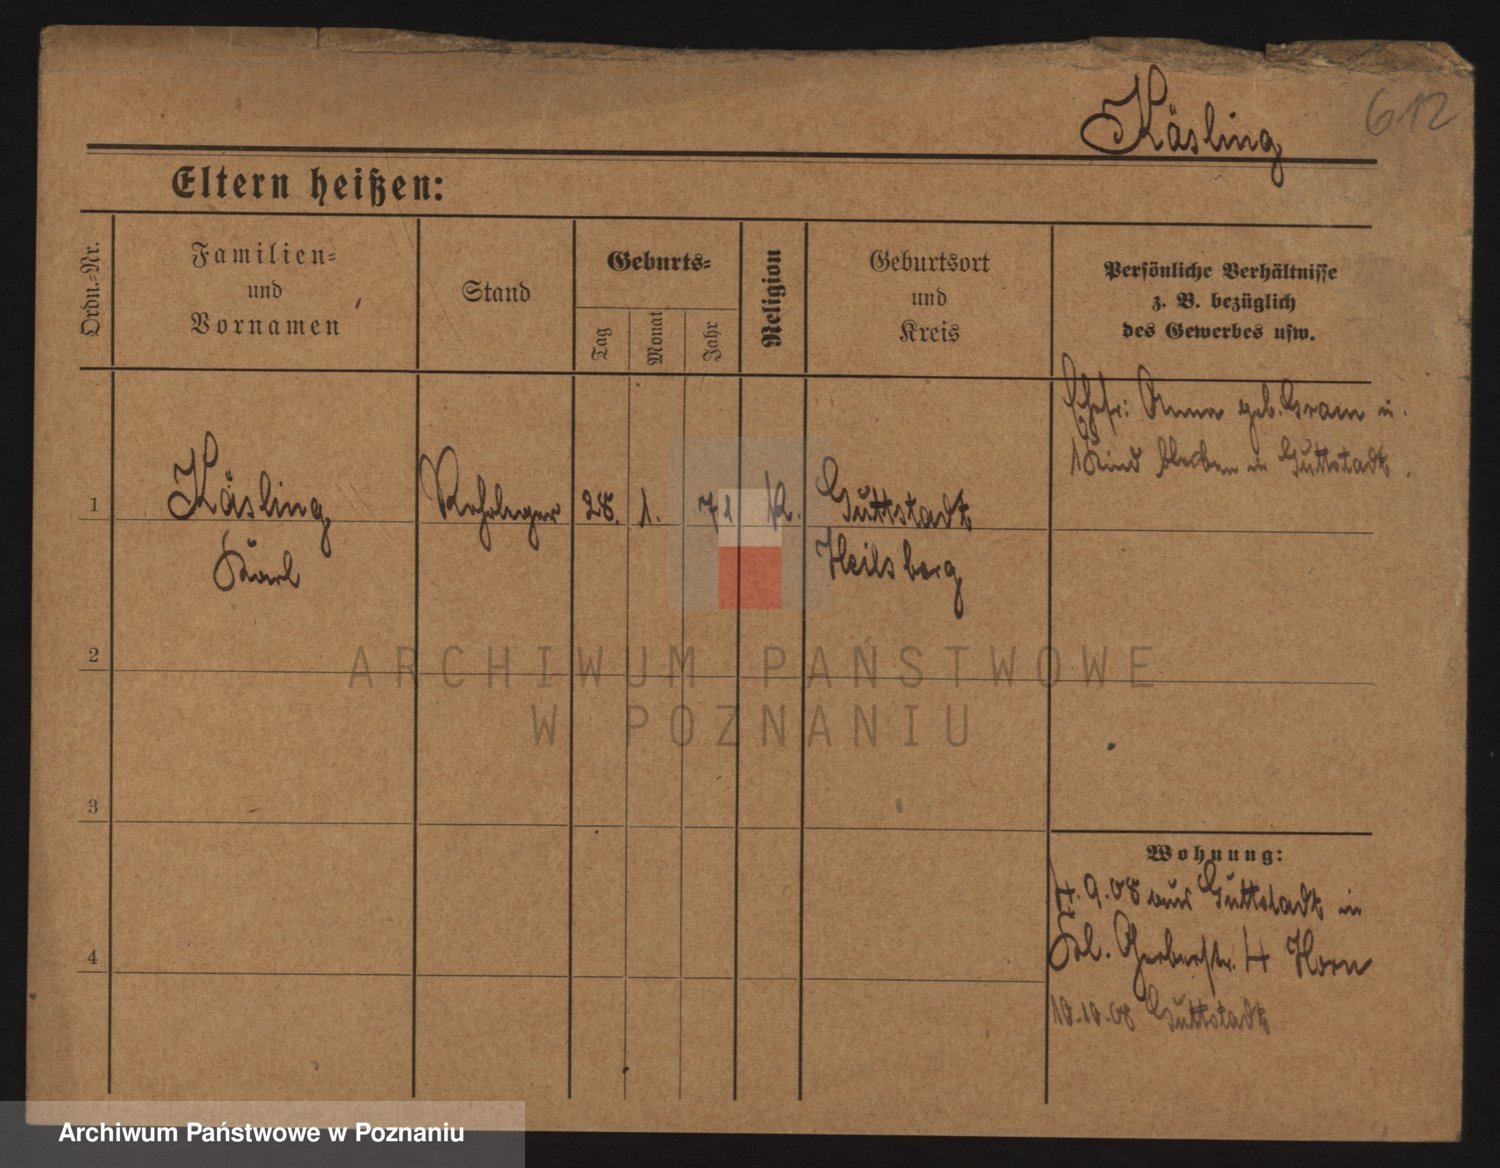 Käsling 612
Eltern heißen:
Ordn.-Nr.
Familien-
und
Vornamen
Stand
Geburts-
Tag
Monat
Jahr
Religion
Geburtsort
und
Kreis
Persönliche Verhältnisse
z. B. bezüglich
des Gewerbes usw.
Ehefr: Anna geb. Gram u.
1 Kind bleiben in Guttstadt.
1 Käsling Rohrleger 28. 1. 71 K. Guttstadt
Karl Heilsberg
2
3
4
Wohnung:
4.9.08 aus Guttstadt in
Kl. Gerberstr. 4 Horn
10.10.08 Guttstadt
ARCHIWUM PAŃSTWOWE
W POZNANIU
Archiwum Państwowe w Poznaniu